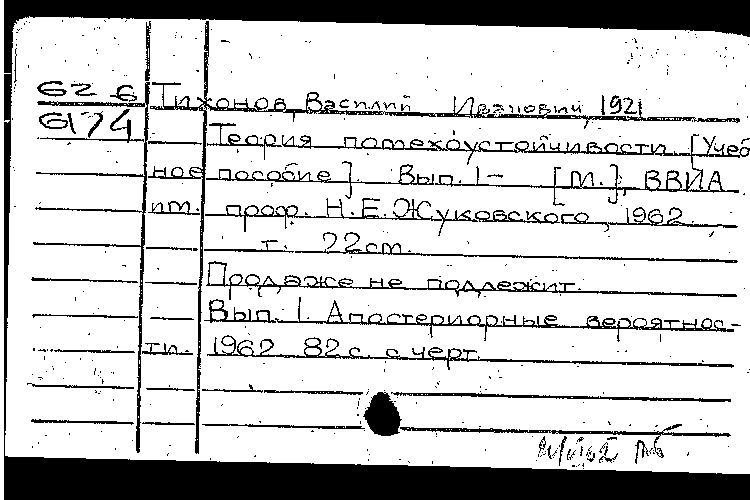 62-6
6174
Тихонов, Василий Иванович, 1921
Теория помехоустойчивости. [Учеб
ное пособие]. Вып. 1- [М.], ВВИА
им. проф. Н.Е.Жуковского, 1962.
т. 22 cm.
Продаже не подлежит.
Вып. 1. Апостериорные вероятнос-
ти. 1962 82 с. с черт.